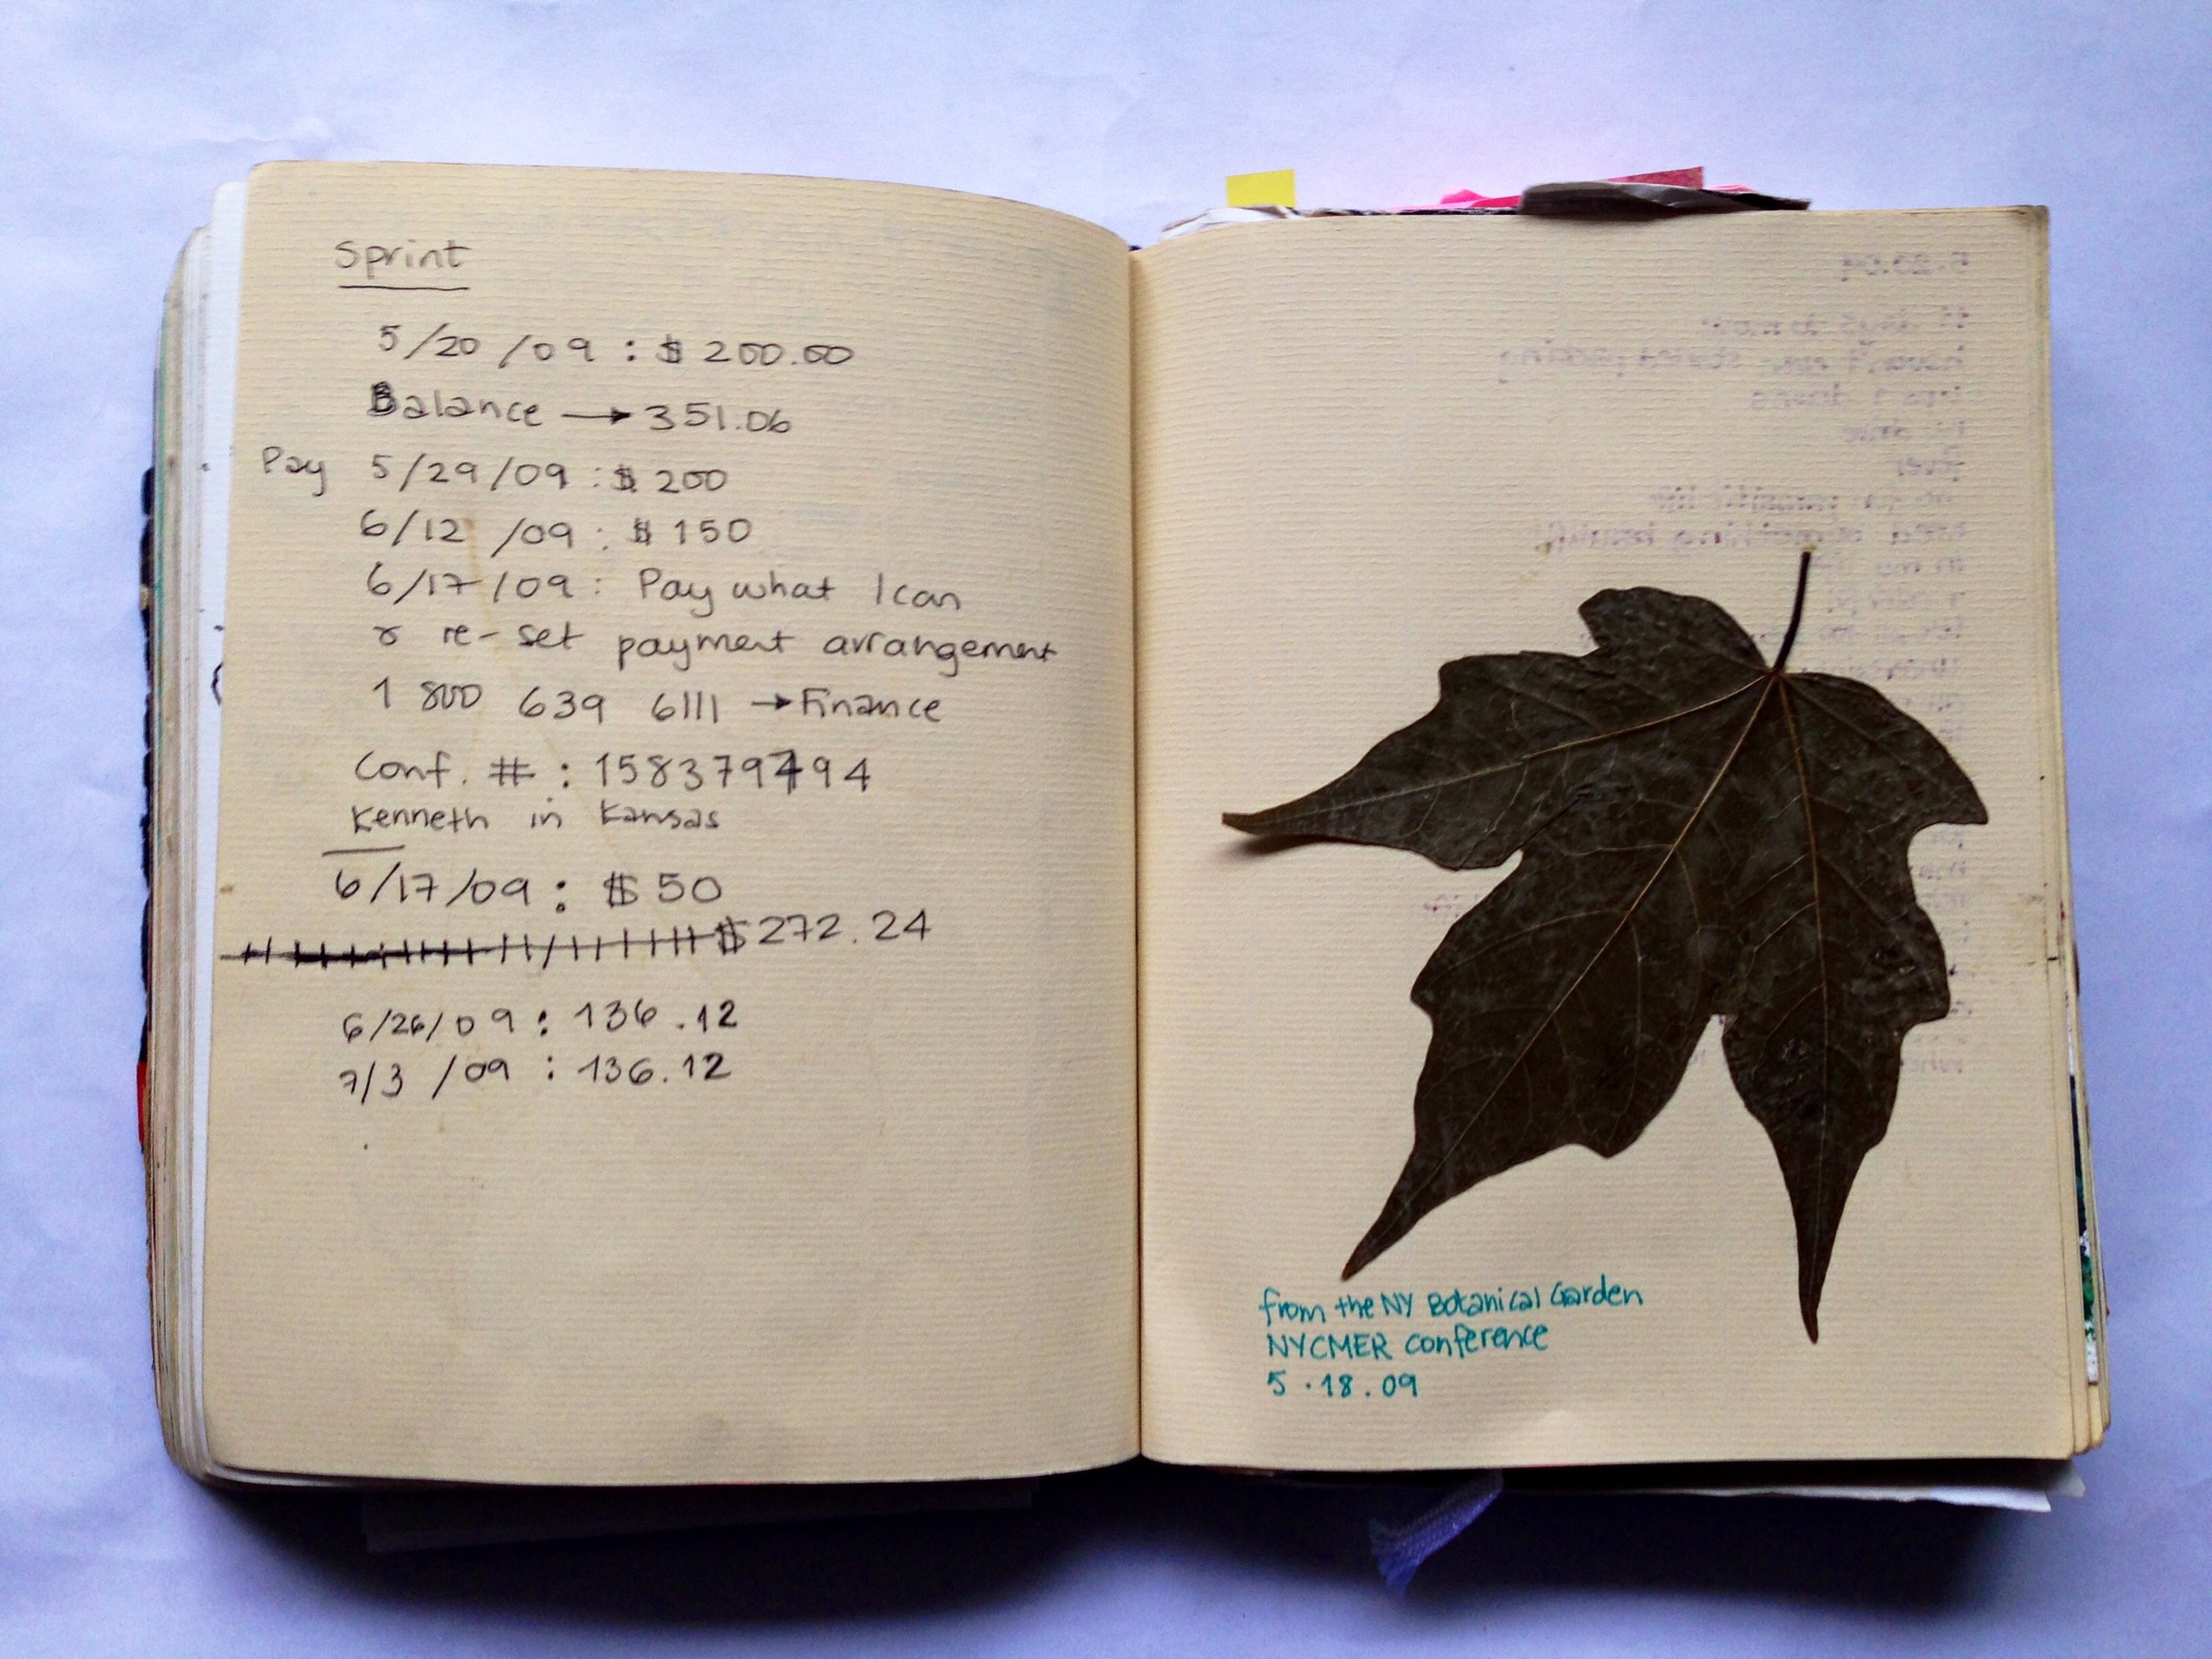 Sprint
5/20/09 : $200.00
Balance → 351.06
Pay 5/29/09 : $200
6/12/09 : $150
6/17/09 : Pay what I can
& re-set payment arrangement
1 800 639 6111 → Finance
Conf. # : 158379794
Kenneth in Kansas
6/17/09 : $50
$272.24
6/26/09 : 136.12
7/3/09 : 136.12
from the NY Botanical Garden
NYCMER conference
5.18.09